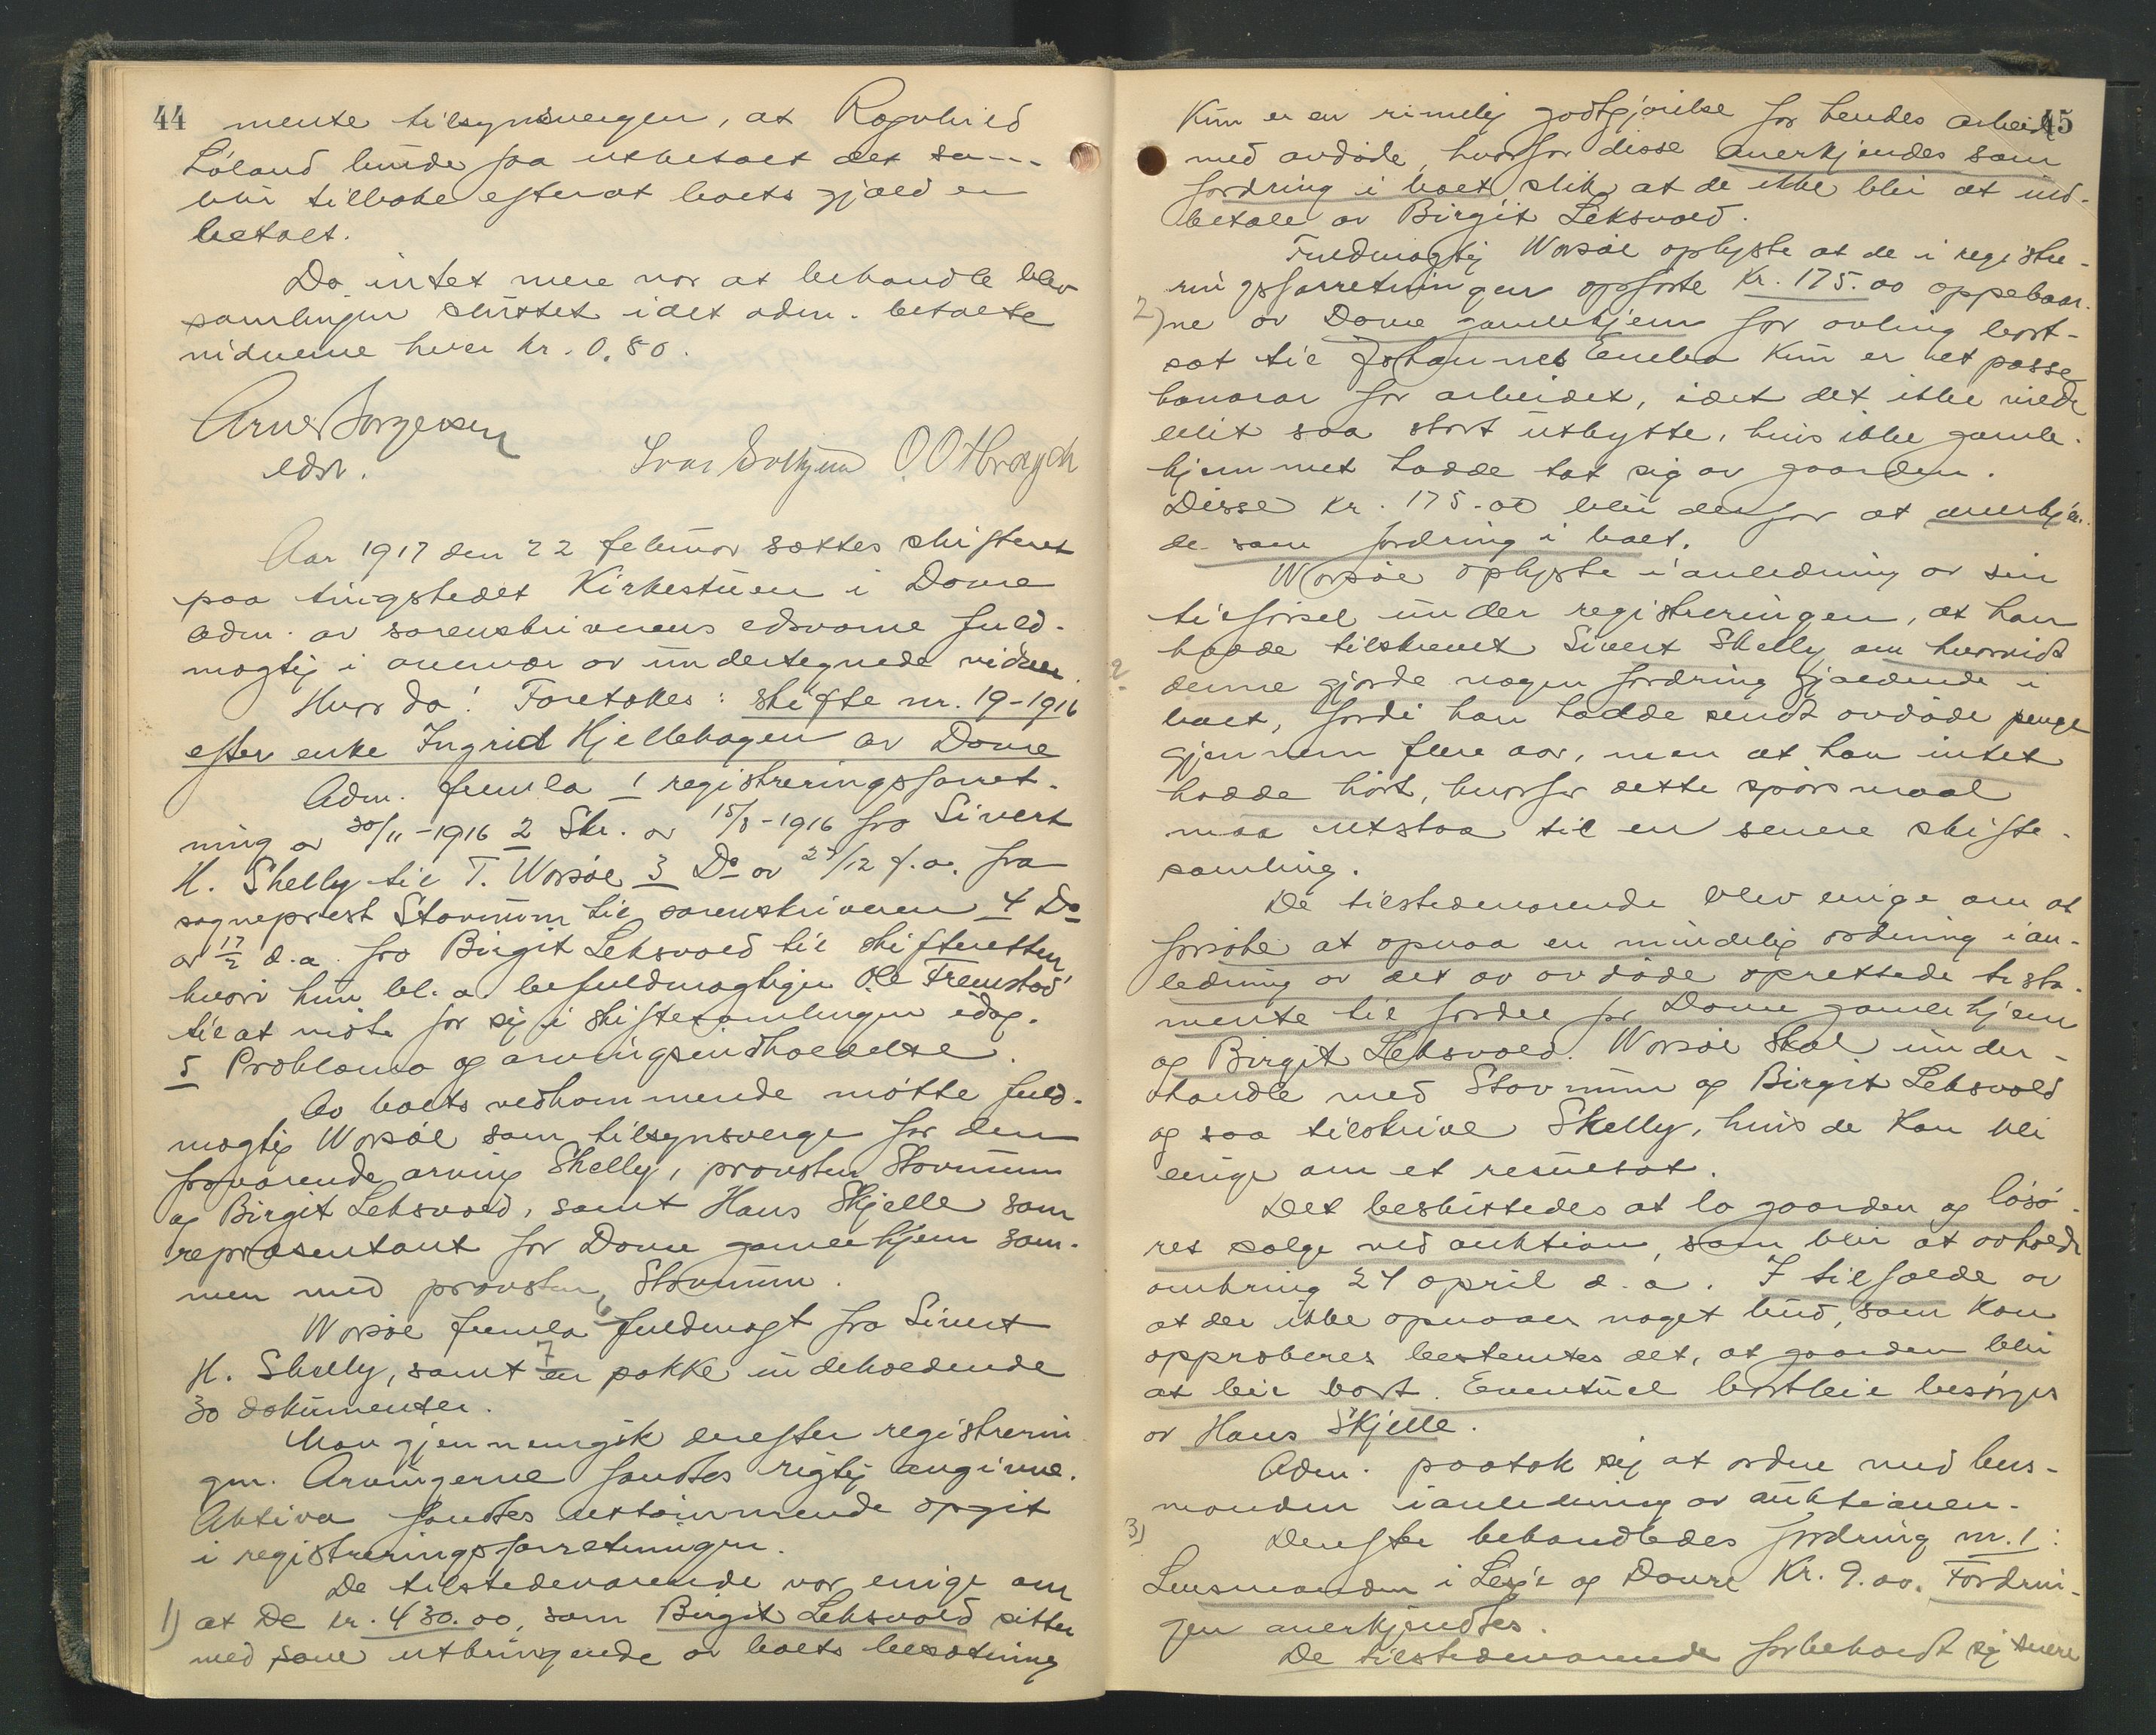 44
mente tilsynsvergen, at Ragnhild
Löland burde faa utbetalt det som
blir tilbake efterat boets gjæld er
betalt.
Da intet mere var at behandle blev
samlingen sluttet idet adm. betalte
vidnerne hver kr. 0,80.
Arne Jörgensen
edsv.
Aar 1917 den 22 februar sattes skifteret
paa tingstedet Kirkestuen i Dovre
adm. av sorenskriverens edsvorne fuld-
mægtig i overvær av undertegnede vidner.
Hvor da! Foretokes: skifte nr. 19-1916
efter enke Ingrid Kjellehagen av Dovre
Adm. fremla 1 registreringsforret-
ning av 30/11-1916 2 Skr. av 15/8-1916 fra Sivert
H. Skelly til T. Worsöe 3 Do av 27/12 f.a. fra
sogneprest Stavrum til sorenskriveren 4 Do
av 17/2 d.a. fra Birgit Leksvold til skifteretten,
hvori hun bl.a. befuldmægtiger Ole Fremstad
til at möte for sig i skiftesamlingen idag.
5 Proklama og arvingsindkaldelse.
Av boets vedkommende mötte fuld-
mægtig Worsöe som tilsynsverge for den
fraværende arving Skelly, provsten Stavrum
og Birgit Leksvold, samt Hans Skjelle som
repræsentant for Dovre gamlehjem sam-
men med provsten Stavrum.
Worsöe fremla 6 fuldmagt fra Sivert
H. Skelly, samt 7 en pakke indeholdende
30 dokumenter.
Man gjennemgik derefter registrerin
gen. Arvingerne fandtes rigtig angivne.
Aktiva fandtes uttömmende opgit
i registreringsforretningen.
De tilstedeværende var enige om
1) at De kr. 430.00, som Birgit Leksvold sitter
med som utbringende av boets besætning
45
Kun er en rimelig godtgjörelse for hendes arbeid
med avdöde, hvorfor disse anerkjendes som
fordring i boet slik at de ikke blir at ind-
betale av Birgit Leksvold.
Fuldmægtig Worsöe oplyste at de i registre-
ringsforretningen opförte Kr. 175.00 oppebaar-
2) ne av Dovre gamlehjem for avling bort-
sat til Johannes Enebo Kun er et passe
honorar for arbeidet, idet det ikke vilde
blit saa stort utbytte, hvis ikke gamle-
hjemmet hadde tat sig av gaarden.
Disse kr. 175.00 blir derfor at anerkjen-
de som fordring i boet.
Worsöe oplyste i anledning av sin
tilförsel under registreringen, at han
hadde tilskrevet Sivert Skelly om hvorvidt
denne gjorde nogen fordring gjældende i
boet, fordi han hadde sendt avdöde penge
gjennem flere aar, men at han intet
hadde hört, hvorfor dette spörsmaal
maa utstaa til en senere skifte-
samling.
De tilstedeværende blev enige om at
forsöke at opnaa en mindelig ordning i an-
ledning av det av avdöde oprettede testa-
mente til fordel for Dovre gamlehjem
og Birgit Leksvold. Worsöe skal under-
handle med Stavrum og Birgit Leksvold
og saa tilskrive Skelly, hvis de kan bli
enige om et resultat.
Det besluttedes at la gaarden og lösö-
res sælge ved auktion, som blir at avholde
omkring 24 april d.a. I tilfælde av
at der ikke opnaaes noget bud, som kan
approberes bestemtes det, at gaarden blir
at leie bort. Eventuel bortleie besörges
av Hans Skjelle.
Adm. paatok sig at ordne med lens-
manden i anledning av auktionen.
3) Derefter behandledes fordring nr. 1:
Lensmanden i Lesje og Dovre Kr. 9.00. Fordrin-
gen anerkjendtes.
De tilstedeværende forbeholdt sig